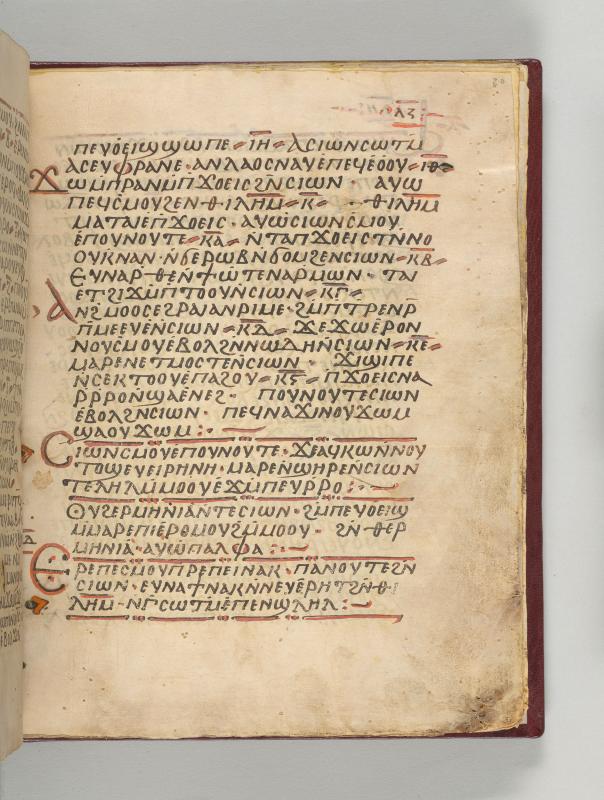 ⲗⲍ
ⲡⲉⲩⲟ̇ⲉⲓϣϣⲱⲡⲉ ⲓⲏ ⲁⲥⲓⲱⲛⲥⲱⲧⲙ̄
ⲁⲥⲉⲩⲫⲣⲁⲛⲉ · ⲁⲛⲗⲁⲟⲥⲛⲁⲩⲉ̇ⲡⲉϥⲉ̇ⲟⲟⲩ ⲓⲑ
ϫⲱⲙ̇ⲡⲣⲁⲛⲙ̇ⲡϫⲟⲉⲓⲥϩⲛ̄ⲥⲓⲱⲛ · ⲁⲩⲱ
ⲡⲉϥⲥⲙⲟⲩϩⲉⲛ ⲑⲓⲗⲏⲙ ⲕ̄ · ⲑⲓⲗⲏⲙ
ⲙⲁⲧⲁⲓⲉ̇ⲡϫⲟⲉⲓⲥ · ⲁⲩⲱ̇ⲥⲓⲱⲛⲥⲙⲟⲩ
ⲉ̇ⲡⲟⲩⲛⲟⲩⲧⲉ ⲕ̄ⲁ̄ ⲛ̇ⲧⲁⲡϫⲟⲉⲓⲥⲧⲛ̄ⲛⲟ
ⲟⲩⲕⲛⲁⲛ · ⲛ̇ϭⲉⲣⲱⲃⲛ̄ϭⲟⲙϩⲉⲛⲥⲓⲱⲛ ⲕ̄ⲃ̄
ⲉⲩⲛⲁⲣ ⲑⲉⲛ̇ϯⲱ̇ⲧⲉⲛⲁⲣⲙⲱⲛ · ⲧⲁⲓ
ⲉⲧϩⲓϫⲙ̄ⲡⲧⲟⲟⲩⲛ̇ⲥⲓⲱⲛ ⲕ̄ⲅ̄
ⲁⲛϩⲙⲟⲟⲥⲉϩⲣⲁⲓⲁⲛⲣⲓⲙⲉ · ϩⲙ̄ⲡⲧⲣⲉⲛⲣ̄
ⲡ̄ⲙⲉⲉⲩⲉ̇ⲛ̇ⲥⲓⲱⲛ ⲕ̄ⲇ̄ ϫⲉϫⲱⲉ̇ⲣⲟⲛ
ⲛⲟⲩⲥⲙⲟⲩⲉⲃⲟⲗϩⲛ̄ⲛⲱⲇⲏⲛ̇ⲥⲓⲱⲛ ⲕ̄ⲉ̄
ⲙⲁⲣⲉⲛⲉⲧⲙⲟⲥⲧⲉⲛ̇ⲥⲓⲱⲛ · ϫⲓϣⲓⲡⲉ
ⲛ̇ⲥⲉⲕⲧⲟⲟⲩⲉ̇ⲡⲁϩⲟⲩ ⲕ̄ⲋ̄ ⲡ̇ϫⲟⲉⲓⲥⲛⲁ
ⲣ̄ⲣ̄ⲣⲟⲛ̇ϣⲁⲉⲛⲉϩ · ⲡⲟⲩⲛⲟⲩⲧⲉⲥⲓⲱⲛ
ⲉ̇ⲃⲟⲗϩⲛ̄ⲥⲓⲱⲛ · ⲡⲉϥⲛⲁϫⲓⲛⲟⲩϫⲱⲙ
ϣⲁⲟⲩϫⲱⲙ :
ⲥⲓⲱⲛⲥⲙⲟⲩⲉ̇ⲡⲟⲩⲛⲟⲩⲧⲉ · ϫⲉⲁϥⲕⲱⲛ̇ⲛⲟⲩ
ⲧⲟϣⲉⲩⲉⲓⲣⲏⲛⲏ · ⲙⲁⲣⲉⲛ̇ϣⲏⲣⲉⲛ̇ⲥⲓⲱⲛ
ⲧⲉⲗⲏⲗⲙ̇ⲙⲟⲟⲩⲉ̇ϫⲙ̄ⲡⲉⲩⲣⲣⲟ :
ⲑⲩϩⲉⲣⲙⲏⲛⲓⲁ̇ⲛ̄ⲧⲉⲥⲓⲱⲛ · ϩⲙ̄ⲡⲉⲩⲟ̇ⲉⲓϣ
ⲙ̇ⲙⲁⲣⲉⲡⲓⲉⲣⲑⲙⲟⲩϩⲙ̇ⲙⲟⲟⲩ · ϩⲛ̄ ⲑⲉⲣ
ⲙⲏⲛⲓⲁ̇ · ⲁⲩⲱ̇ⲡⲁⲗⲫⲁ :
ⲉⲣⲉⲡⲉⲥⲙⲟⲩⲡⲣⲉⲡⲉⲓⲛⲁⲕ · ⲡⲁⲛⲟⲩⲧⲉϩⲛ̄
ⲥⲓⲱⲛ · ⲉⲩⲛⲁϯⲛⲁⲕⲛ̇ⲛⲉⲩⲉ̇ⲣⲏⲧϩⲛ̄ⲑⲓ
ⲗⲏⲙ · ⲛⲅ̄ⲥⲱⲧⲙ̄ⲉ̇ⲡⲉⲛϣⲗⲏⲗ :